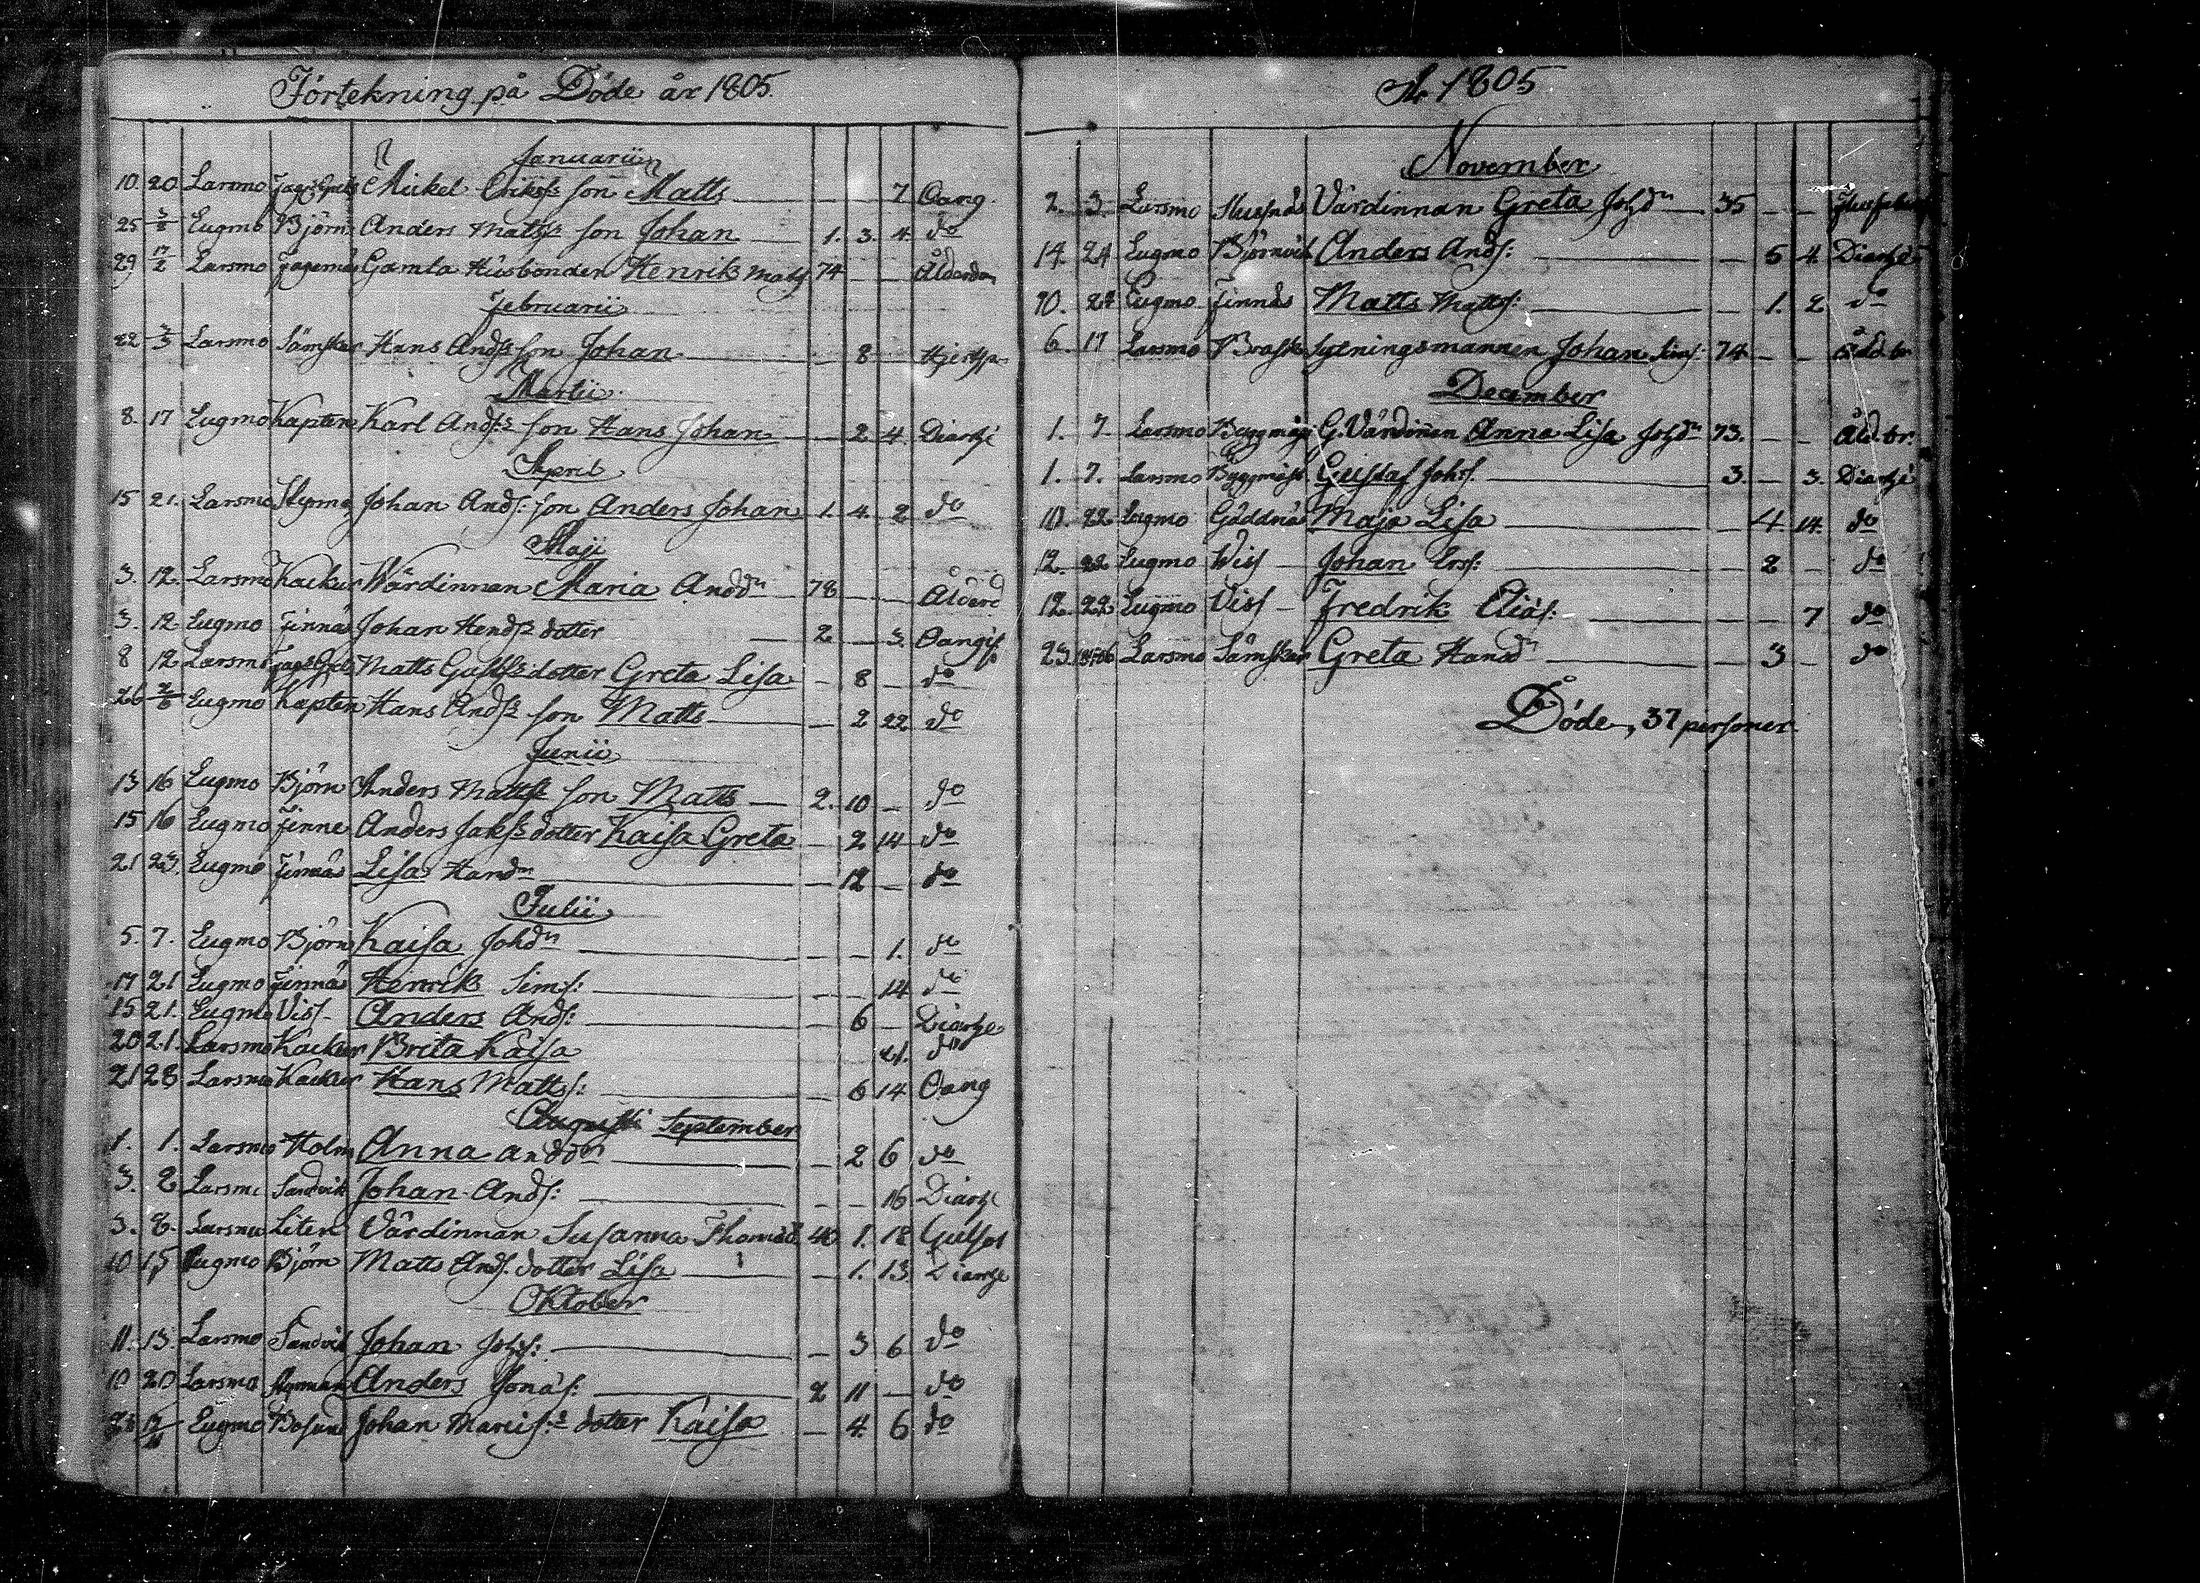 Förtekning på Döde år 1805
Januarii
10. 20 Larsmo Mickel Erikss: son Matts 7 Oang.
25 3/2 Eugmo Björn Anders Matts:s son Johan 1. 3. 4. do
29 17/2 Larsmo Gamla Husbonden Henrik Matss 74 Ålderdom
Februarii
22 3/3 Larsmo Sämskar Hans Ands:s son Johan 8
Martii
8. 17 Eugmo Kapten Karl Ands:s son Hans Johan 2 4. Diarhé
April
15 21. Larsmo Johan Ands: son Anders Johan 1. 4. 2 do
Maji
3. 12. Larsmo Kackur Wärdinnan Maria Anddr 78 Ålderd
3. 12 Eugmo Finnäs Johan Hends:s dotter 2 3. Oangif
8 12 Larsmo Matts Gustfs:s dotter Greta Lisa 8 do
26 2/6 Eugmo Kapten Hans Ands:s son Matts 2 22 do
Junii
13 16 Eugmo Björn Anders Matts:s son Matts 2. 10 do
15 16 Eugmo Finne Anders Jaks:s dotter Kaisa Greta 2 14 do
21 23. Eugmo Finnäs Lisa Handr 12 do
Julii
5. 7. Eugmo Björn Kaisa Johdr 1. do
17 21 Eugmo Finnäs Henrik Sims: 14 do
15 21. Eugmo Viss Anders Ands: 6 Diarhe
20 21. Larsmo Kackur Brita Kaisa 21. do
21 28 Larsmo Kackur Hans Matts: 6 14 Oang
Augusti September
1. 1. Larsmo Holm Anna Anddr 2 6 do
3. 2 Larsmo Sandvik Johan Ands: 16 Diarhe
3. 8. Larsmo Liten Värdinnan Susanna Thomasd 40 1. 18 Gulsot
10 15 Eugmo Björn Matts Ands. dotter Lisa 1. 13 Diarhe
Oktober
11. 13. Larsmo Sandvik Johan Johs: 3 6 do
10 20 Larsmo Anders Jonas: 2 11 do
Eugmo Bosund Johan Maris:s dotter Kaisa 4. 6 do
År 1805
November
2. 3. Larsmo Värdinnan Greta Johdr 35
14. 24 Eugmo Björnvik Anders Ands: 5 4. Diarhé
20. 24 Eugmo Finnäs Matts Matts: 1. 2 do
6. 17 Larsmo Sytningsmannen Johan Sims: 74 Åld.br
December
1. 7. Larsmo Byggmäst G. Värdinnan Anna Lisa Johdr 73. Åld.br.
1. 7. Larsmo Byggmäst. Gustaf Johs. 3. 3. Diarhé
10. 22 Eugmo Gäddnäs Maja Lisa 4 14. do
12. 22 Eugmo Wiss Johan Ers: 2 do
12. 22 Eugmo Viss Fredrik Elias: 7 do
23. Larsmo Sämskar Greta Handr 3 do
Döde, 37 personer